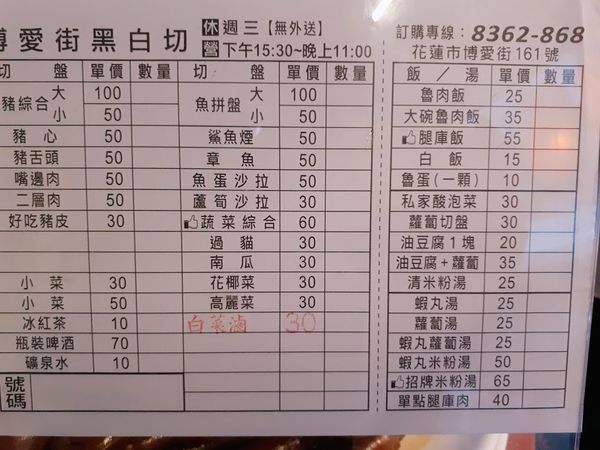 博愛街黑白切
休 週三【無外送】
營 下午15:30~晚上11:00
訂購專線：8362-868
花蓮市博愛街161號
切 盤 單價 數量
豬綜合 大 100
小 50
豬 心 50
豬舌頭 50
嘴邊肉 50
二層肉 50
好吃豬皮 30
小 菜 30
小 菜 50
冰紅茶 10
瓶裝啤酒 70
礦泉水 10
號碼
切 盤 單價 數量
魚拼盤 大 100
小 50
鯊魚煙 50
章 魚 50
魚蛋沙拉 50
蘆筍沙拉 30
蔬菜綜合 60
過 貓 30
南 瓜 30
花椰菜 30
高麗菜 30
白菜滷 30
飯 ／ 湯 單價 數量
魯肉飯 25
大碗魯肉飯 35
腿庫飯 55
白 飯 15
魯蛋(一顆) 10
私家酸泡菜 30
蘿蔔切盤 30
油豆腐1塊 20
油豆腐+蘿蔔 35
清米粉湯 25
蝦丸湯 25
蘿蔔湯 25
蝦丸蘿蔔湯 25
蝦丸米粉湯 50
招牌米粉湯 65
單點腿庫肉 40